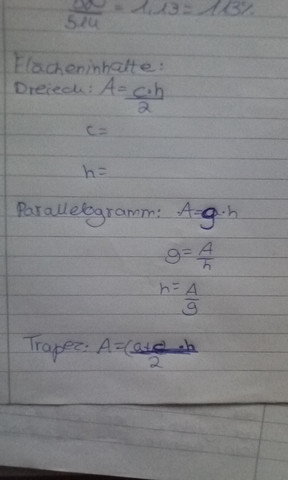 514 = 1,13 = 113%
Flächeninhalte:
Dreieck: A = c·h / 2
c =
h =
Parallelogramm: A = g·h
g = A / h
h = A / g
Trapez: A = (a+c) · h / 2